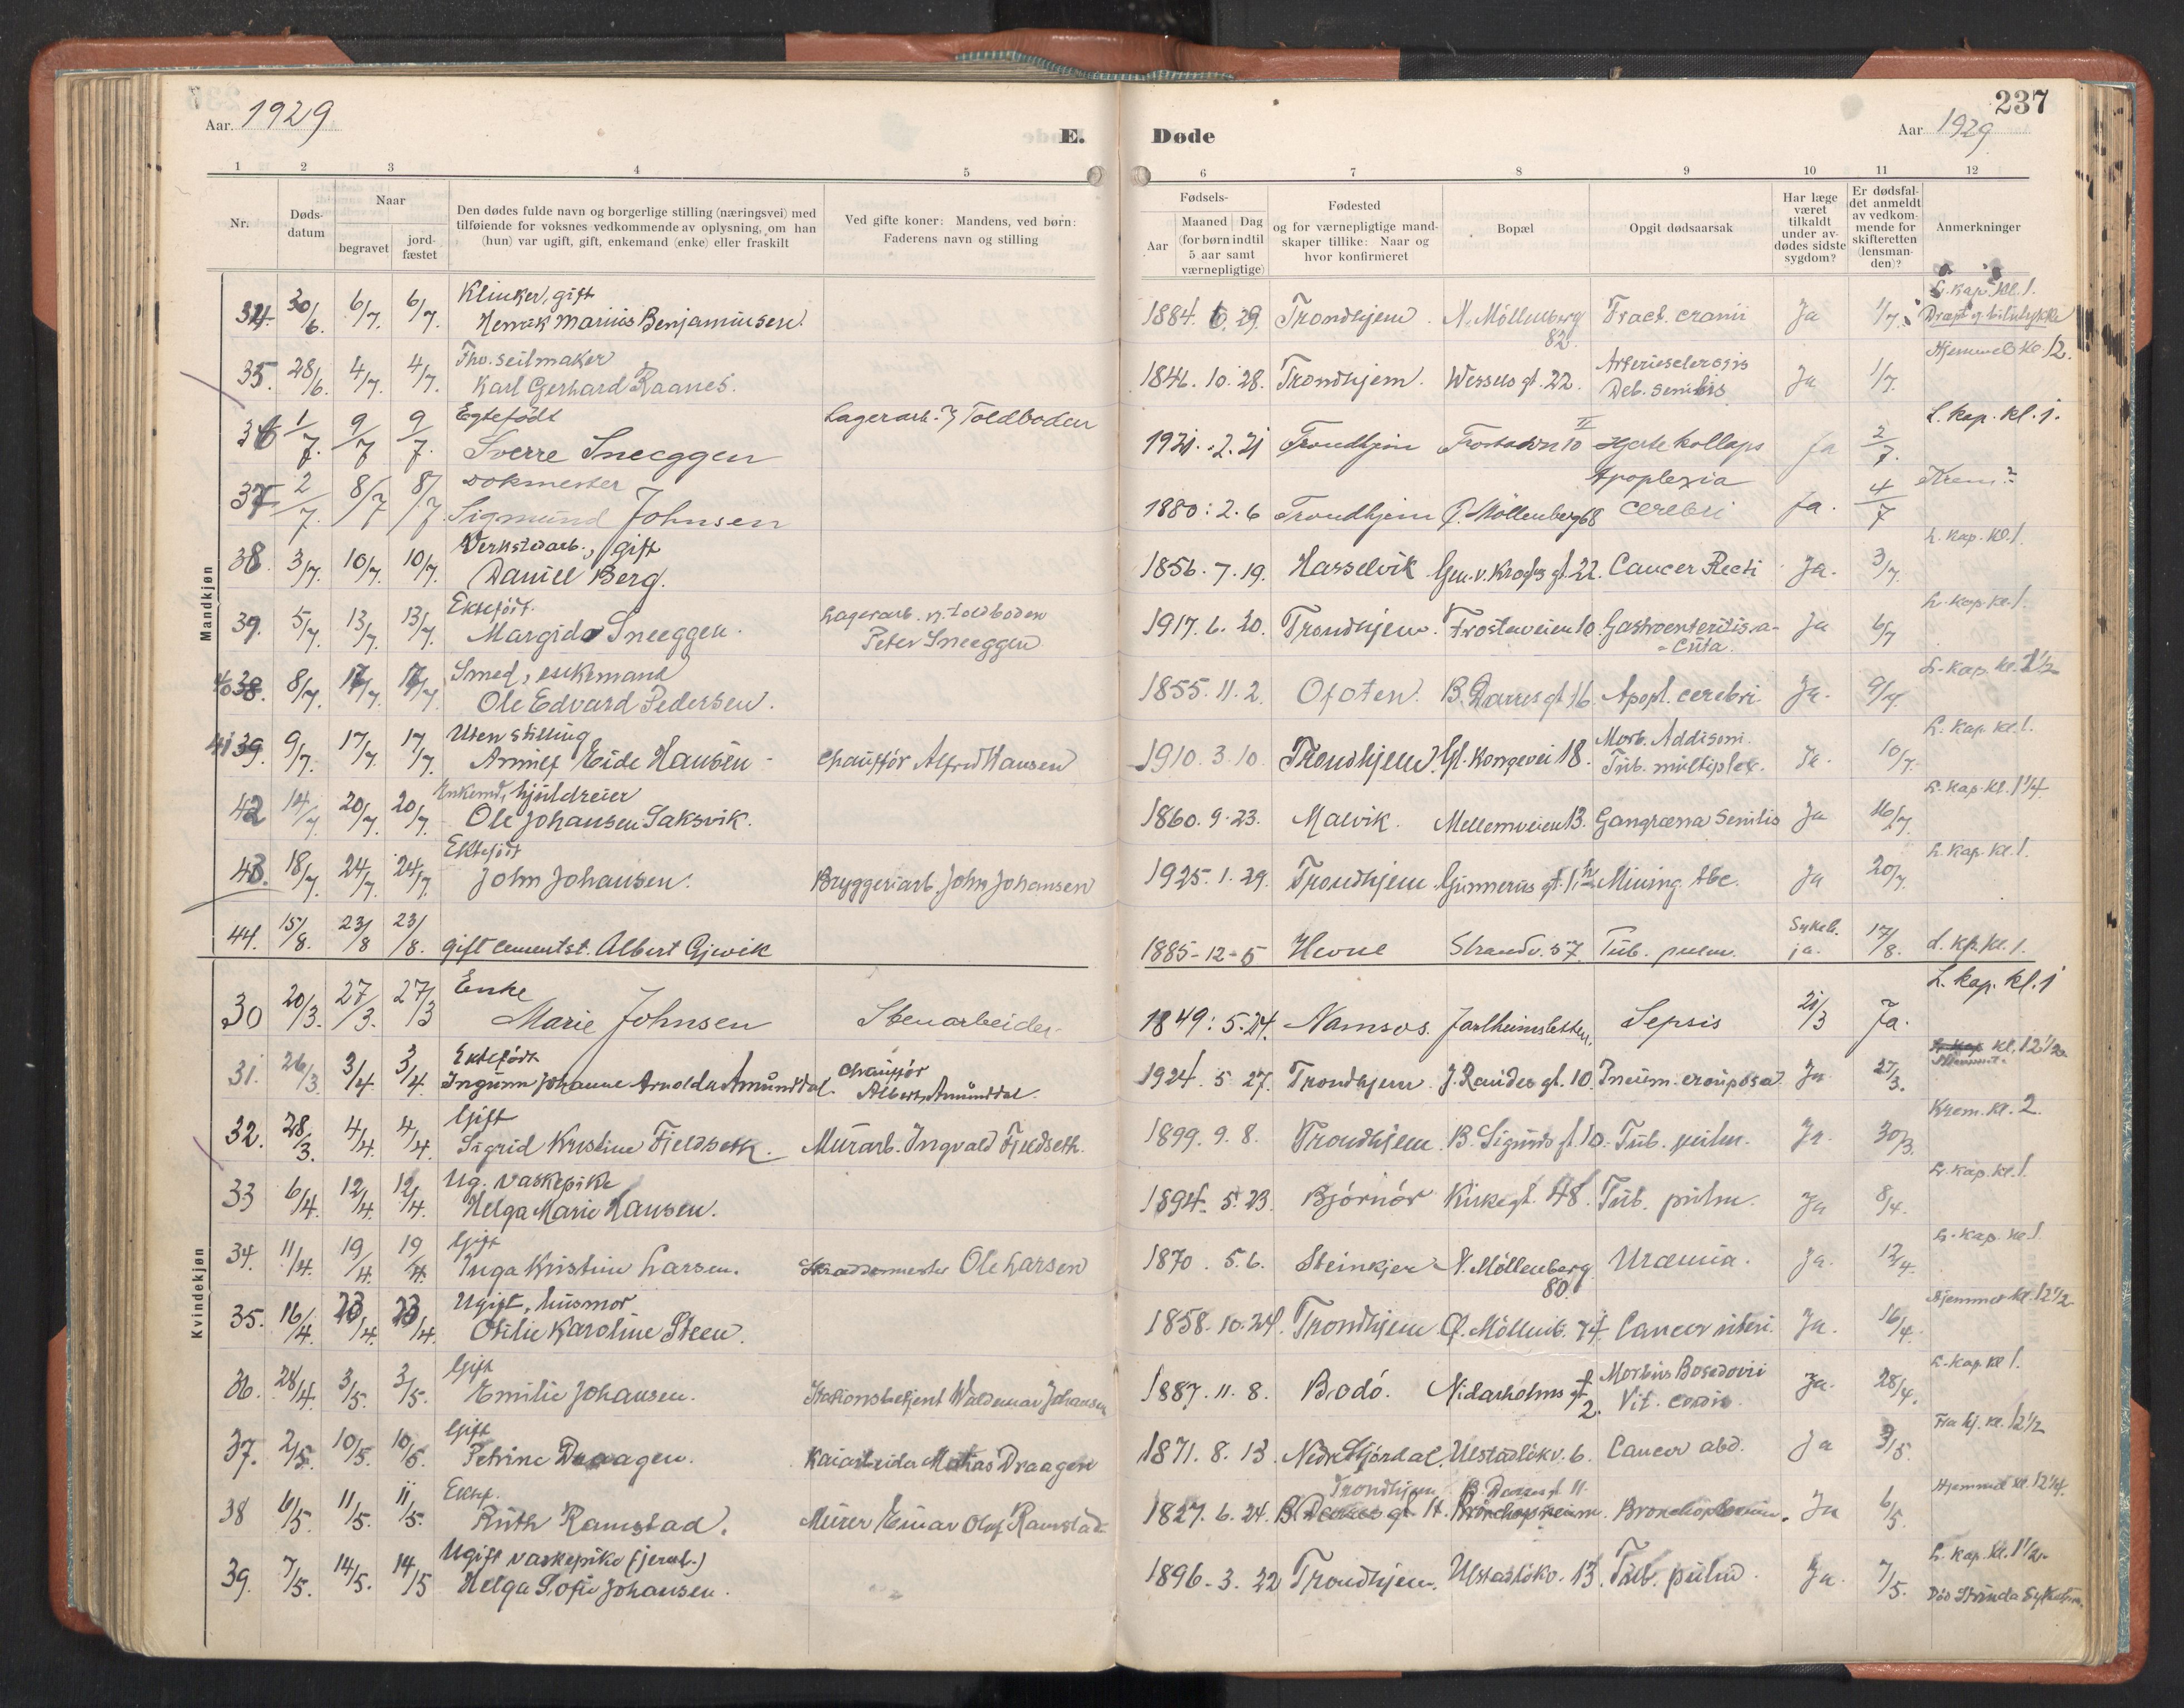 237
Aar. 1929
E.
Døde
Aar 1929
1 2 3 4 5
6 7 8 9 10 11 12
Nr.
Døds-
datum
Naar
begravet
jord-
fæstet
Den dødes fulde navn og borgerlige stilling (næringsvei) med
tilføiende for voksnes vedkommende av oplysning, om han
(hun) var ugift, gift, enkemand (enke) eller fraskilt
Ved gifte koner: Mandens, ved børn:
Faderens navn og stilling
Fødsels-
Aar
Maaned Dag
(for børn indtil
5 aar samt
værnepligtige)
Fødested
og for værnepligtige mand-
skaper tillike: Naar og
hvor konfirmeret
Bopæl
Opgit dødsaarsak
Har læge
været
tilkaldt
under av-
dødes sidste
sygdom?
Er dødsfal-
det anmeldt
av vedkom-
mende for
skifteretten
(lensman-
den)?
Anmerkninger
Mandkjøn
Klinker, gift L. kap. kl. 1.
34. 30/6. 6/7. 6/7. Henrik Marius Benjaminsen. 1884. 6. 29. Trondhjem. N. Möllenberg 82. Fract. cranii Ja 1/7. Dræpt
Fho. seilmaker Hjemmet kl 12.
35. 28/6. 4/7. 4/7. Karl Gerhard Raanes. 1846. 10. 28. Trondhjem. Wessels gt. 22. Arteriosclerosis Deb. senilis Ja 1/7.
Egtefödt Lagerarb. Toldboden L. kap. kl. 1.
36 1/7. 9/7 9/7. Sverre Sneeggen 1921. 2. 21 Trondhjem 10 II Hjertekollaps Ja 2/7.
Dokmester Krem. 2
37 2/7. 8/7 8/7. Sigmund Johnsen 1880: 2. 6 Trondhjem Ö. Möllenberg 68 Apoplexia cerebri Ja. 4/7
Verkstedarb., gift L. kap. kl. 1.
38. 3/7. 10/7. 10/7. Daniel Berg. 1856. 7. 19. Hasselvik Gen. v. Kroghs gt. 22. Cancer Recti Ja. 3/7.
Ektefödt. Lagerarb. v. toldboden L. kap. kl. 1.
39. 5/7. 13/7. 13/7. Margido Sneeggen. Peter Sneeggen 1917. 6. 20. Trondhjem. Frostaveien 10. Gastroenteritis acuta. Ja 6/7
Smed, enkemand L. kap. kl. 1 1/2
40 38. 8/7. 17/7. 17/7. Ole Edvard Pedersen. 1855. 11. 2. Ofoten. B. Darres gt 16. Apopl. cerebri Ja. 9/7.
Uten stilling L. kap. kl. 1.
41 39. 9/7. 17/7. 17/7. Hansen - Chauffór Alfred Hansen 1910. 3. 10. Trondhjem. Gl. Kongevei 18. Morb. Addisoni. Tub. multiplex. Ja. 10/7.
Enkemd, hjuldreier L. kap. kl. 1 1/4.
42 14/7. 20/7. 20/7. Ole Johansen Saksvik. 1860. 9. 23. Malvik. Mellemveien 13. Gangræna Senilis Ja 16/7.
Ektefödt L. kap. kl. 1.
43. 18/7. 24/7. 24/7. John Johansen. Bryggeriarb. John Johansen 1925. 1. 29. Trondhjem. Gunnerus gt. 1 h Mining. tbc. Ja 20/7.
44. 15/8. 23/8 23/8. gift cementst. Albert Gjevik 1885-12-5 Hevne Strandv. 57. Tub. pulm. Sykeh. ja. 17/8. L. kp. kl. 1.
Kvindekjøn
Enke L. kap. kl. 1
30 20/3. 27/3. 27/3 Marie Johnsen Stenarbeider 1849: 5. 24. Namsos. Sepsis 21/3 Ja.
Ektefödt chauffór kl. 12 1/2
31. 26/3 3/4. 3/4. Ingunn Johanne Arnolda Amunddal. Albert Amunddal. 1924. 5 27. Trondhjem J. Randes gt. 10. Pneum. crouposa Ja 27/3.
Gift Krem. kl. 2.
32. 28/3. 4/4. 4/4. Sigrid Kristine Fjeldseth. Murarb. Ingvald Fjeldseth. 1899. 9. 8. Trondhjem. B. Sigurds gt 10. Tub. pulm. Ja. 30/3.
Ug. vaskepike L. kap. kl. 1.
33 6/4. 12/4. 12/4. Helga Marie Hansen. 1894. 5. 23. Bjórnór Kirkegt. 48. Tub. pulm. Ja 8/4.
Gift L. kap. kl. 1
34. 11/4. 19/4. 19/4. Inga Kristine Larsen. Skræddermester Ole Larsen 1870. 5. 6. Steinkjer N. Möllenberg 80. Uræmia. Ja. 12/4.
Ugift, husmor Hjemmet kl. 12 1/2
35. 16/4. 23/4. 23/4. Otilie Karoline Steen. 1858. 10. 24. Trondhjem Ö. Möllenb. 74. Cancer uteri. Ja. 16/4.
Gift L. kap. kl 1.
36. 28/4. 3/5. 3/5. Emilie Johansen. Stationsbetjent Waldemar Johansen 1887. 11. 8. Bodó. Nidarholms gt 2. Morbus Basedovii Vit. cordis. Ja. 28/4.
Gift Fra hj. kl. 12 1/2
37. 2/5. 10/5. 10/5. Petrine Draagen. Kaiarbeider Draagen 1871. 8. 13. Nedre Stjórdal. Ulstadlökv. 6. Cancer abd. Ja 3/5.
Ektef. Trondhjem B. Darres gt. 11. Hjemmet kl. 12 1/4.
38 6/5. 11/5. 11/5. Ruth Ramstad. Murer Einar Olaf Ramstad 1827. 6. 24. Ja 6/5.
Ugift vaskepike L. kap. kl. 1 1/2.
39. 7/5. 14/5. 14/5 Helga Sofie Johansen. 1896. 3. 22 Trondhjem. Ulstadlökv. 13. Tub. pulm. Ja. 7/5. Död Strinda Sykehus.